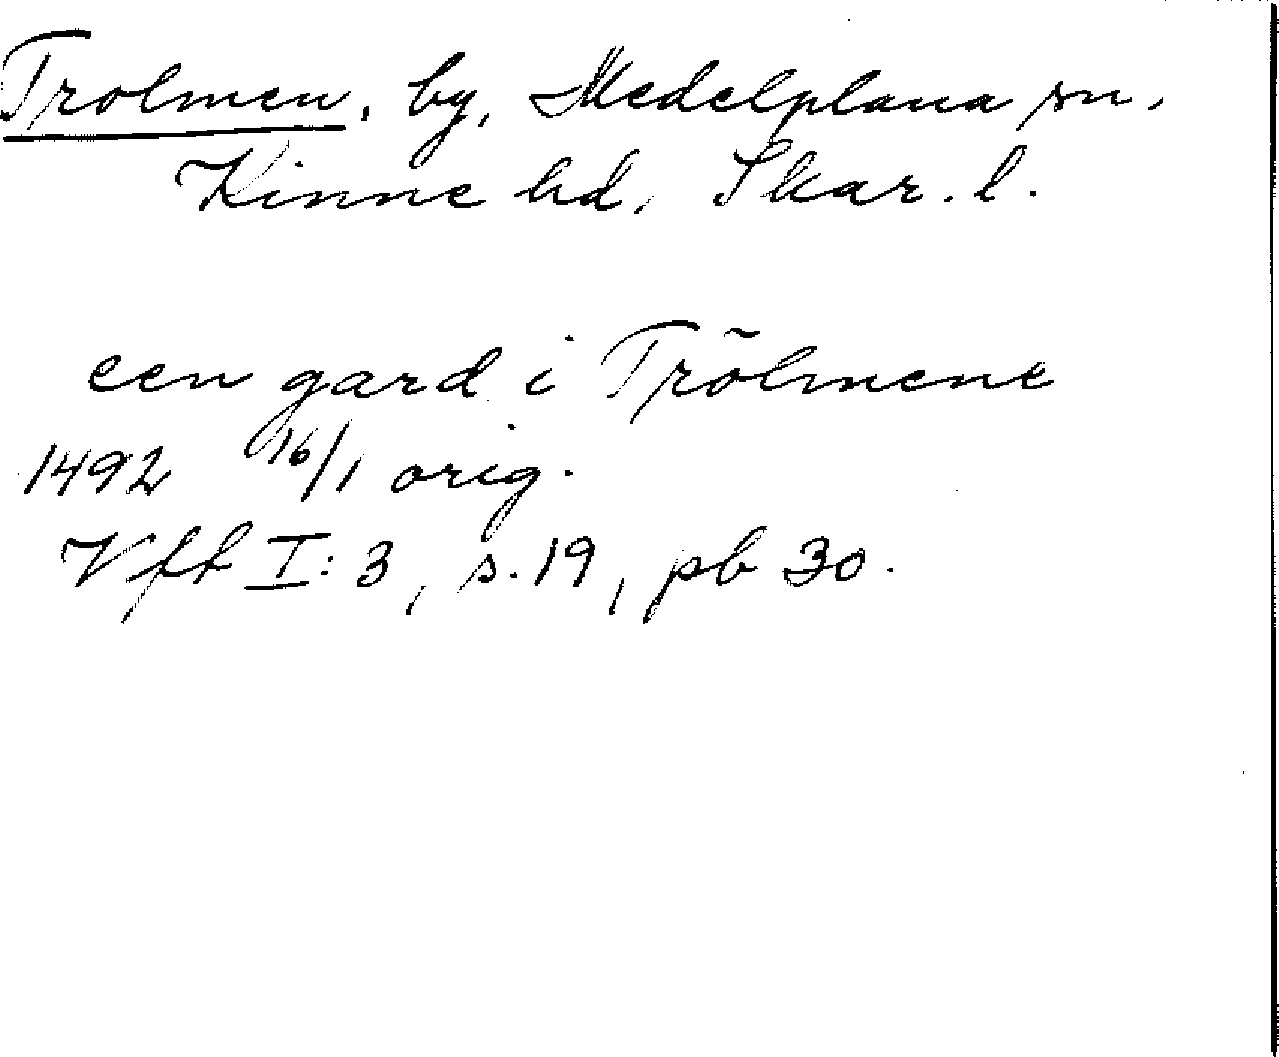 Trolmen, by, Medelplana sn,
Kinne hd, Skar. l.
een gard i Trõlmene
1492 16/1 orig.
Vff I:3, s.19, pb 30.